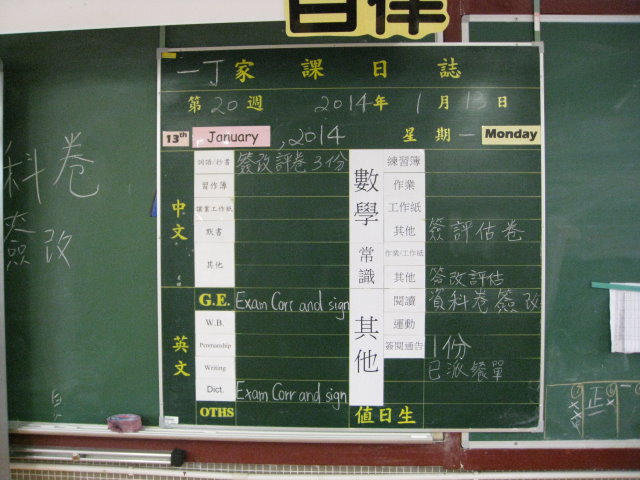 自律
一丁家課日誌
第20週 2014年1月13日
13th January, 2014 星期一 Monday
中文
詞語/抄書 簽改評卷3份
習作簿
課業工作紙
默書
其他
英文
G.E. Exam Corr and sign
W.B.
Penmanship
Writing
Dict. Exam Corr and sign
OTHS
數學
練習簿
作業
工作紙
其他 簽評估卷
常識
作業/工作紙
其他 簽改評估
其他
閱讀 資料卷簽改
運動
簽閱通告 1份
已派餐單
值日生
料卷
簽改
正